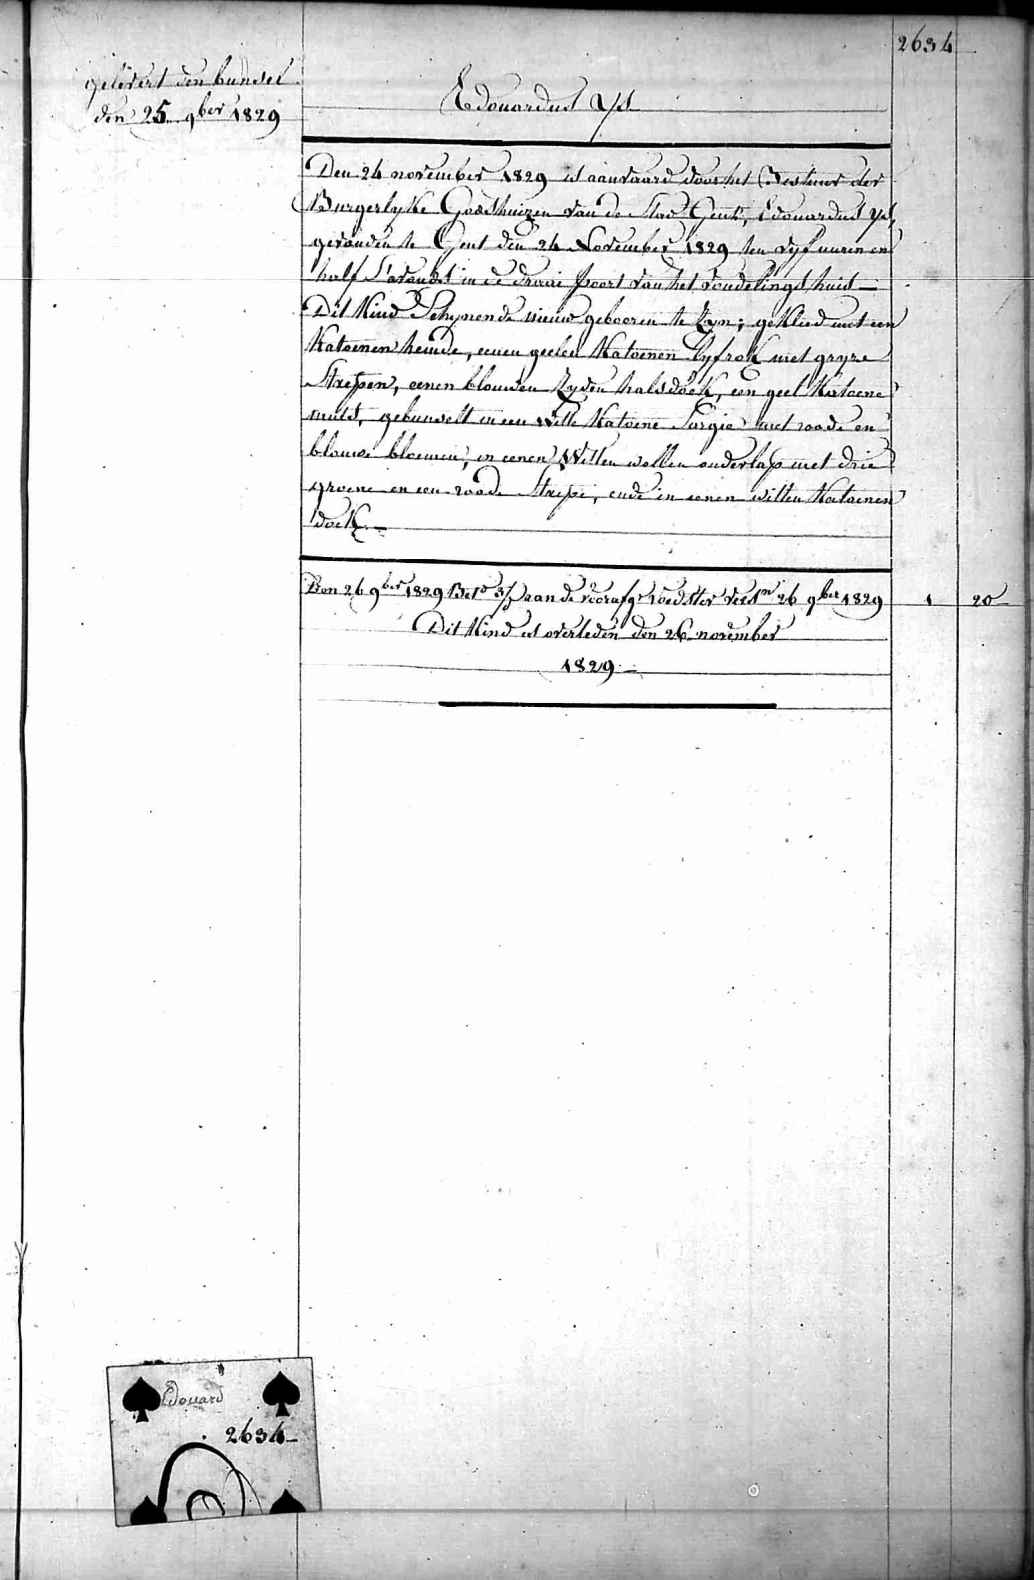 2634
gelevert den bundel
den 25 9ber 1829
Edouardus Ys
Den 24 november 1829 is aanvaard door het Bestuur der
Burgerlyke Godshuizen van de Stad Gent, Edouardus Ys,
gevonden te Gent den 24 November 1829 ten vyf uuren en
half S'avonds in de draai poort van het vondelings huis —
Dit Kind Schynende nieuw gebooren te Zyn; gekleed met een
Katoenen hemde, eenen geelen Katoenen lyfrok met gryze
Strepen, eenen blauwen Zyden halsdoek, een geel Katoene
muts, gebunselt in een witte Katoene Sargie met roode en
blauwe bloemen, in eenen Witten wollen onderlap met drie
groene en een roode Strepe, ende in eenen witten Katoenen
doek. —
Bon 26 9ber 1829 aan de voedster 26 9ber 1829 1 20
Dit Kind is overleden den 26 november
1829. —
Edouard
2634